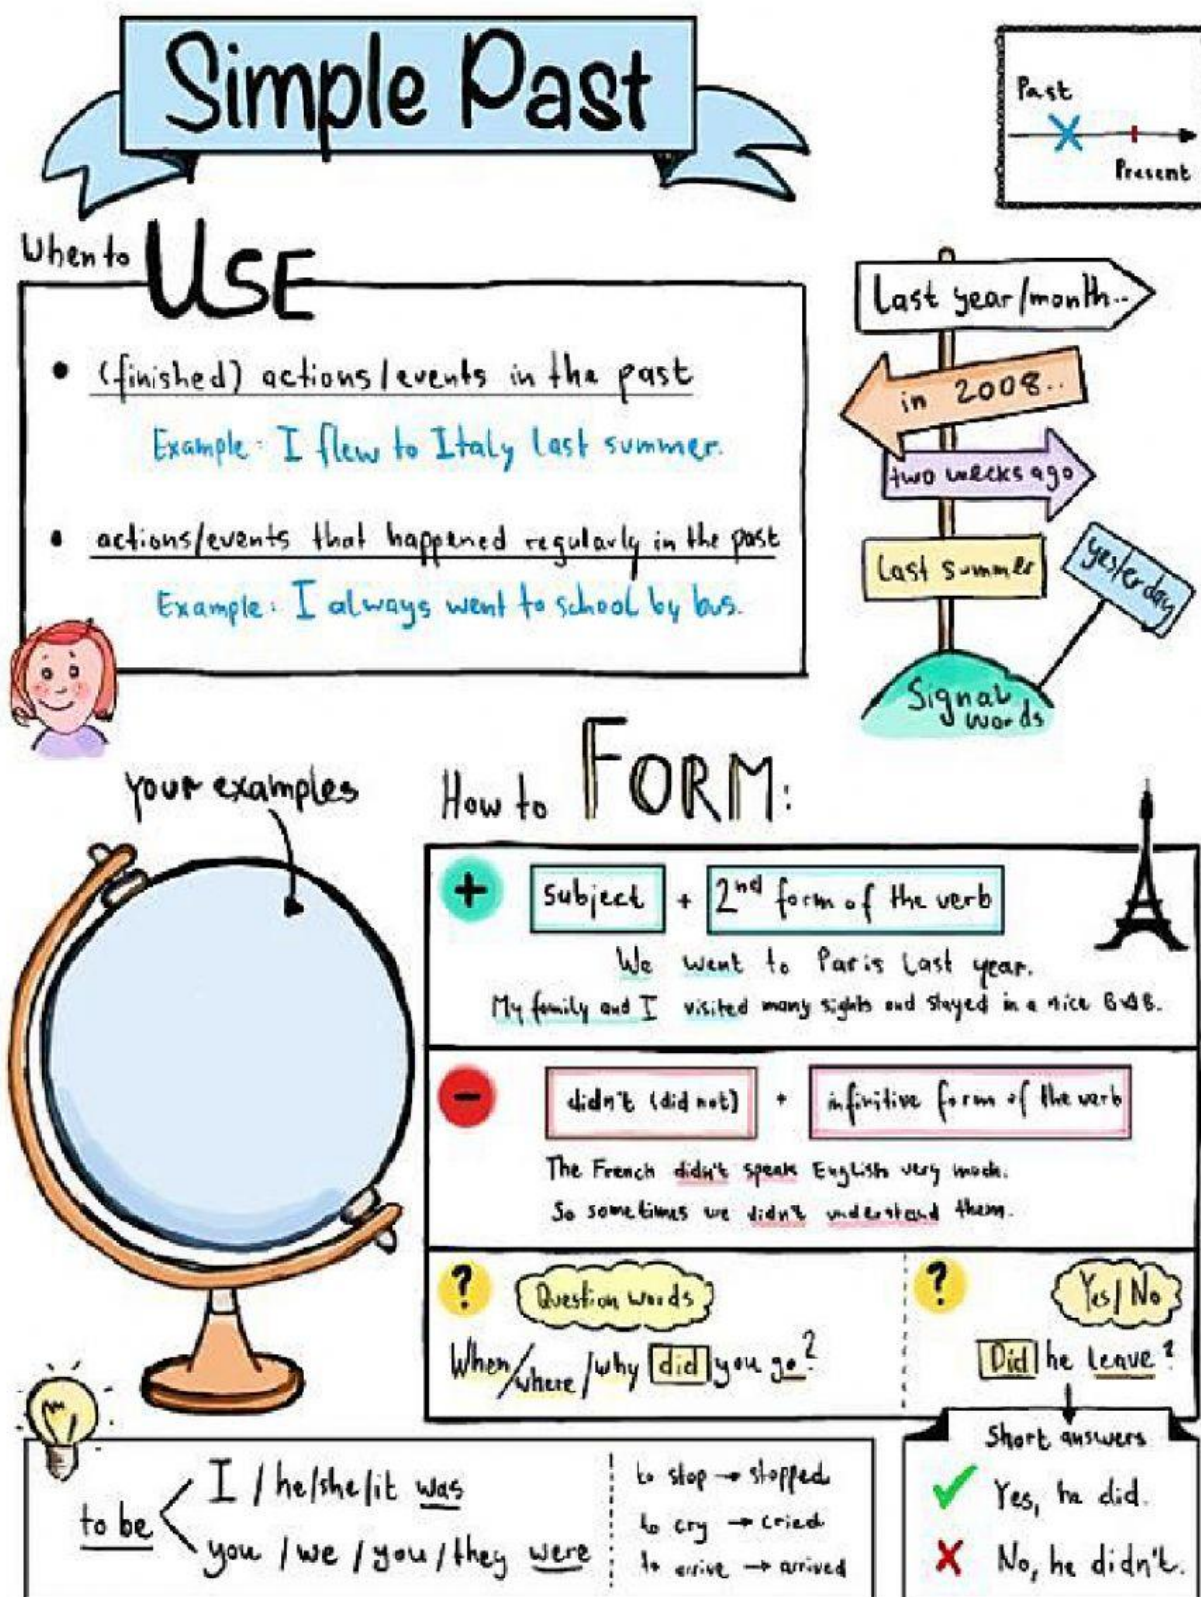 Simple Past
Past
Present
When to USE
• (finished) actions/events in the past
Example: I flew to Italy last summer.
• actions/events that happened regularly in the past
Example: I always went to school by bus.
Last year/month..
in 2008..
two weeks ago
Last summer
yesterday
Signal
words
your examples
How to FORM:
+ Subject + 2nd form of the verb
We went to Paris last year.
My family and I visited many sights and stayed in a nice B&B.
- didn't (did not) + infinitive form of the verb
The French didn't speak English very much.
So sometimes we didn't understand them.
? Question words
When/where/why did you go?
? Yes/No
Did he leave?
Short answers
Yes, he did.
No, he didn't.
to be
I / he/she/it was
you / we / you / they were
to stop → stopped
to cry → cried
to arrive → arrived